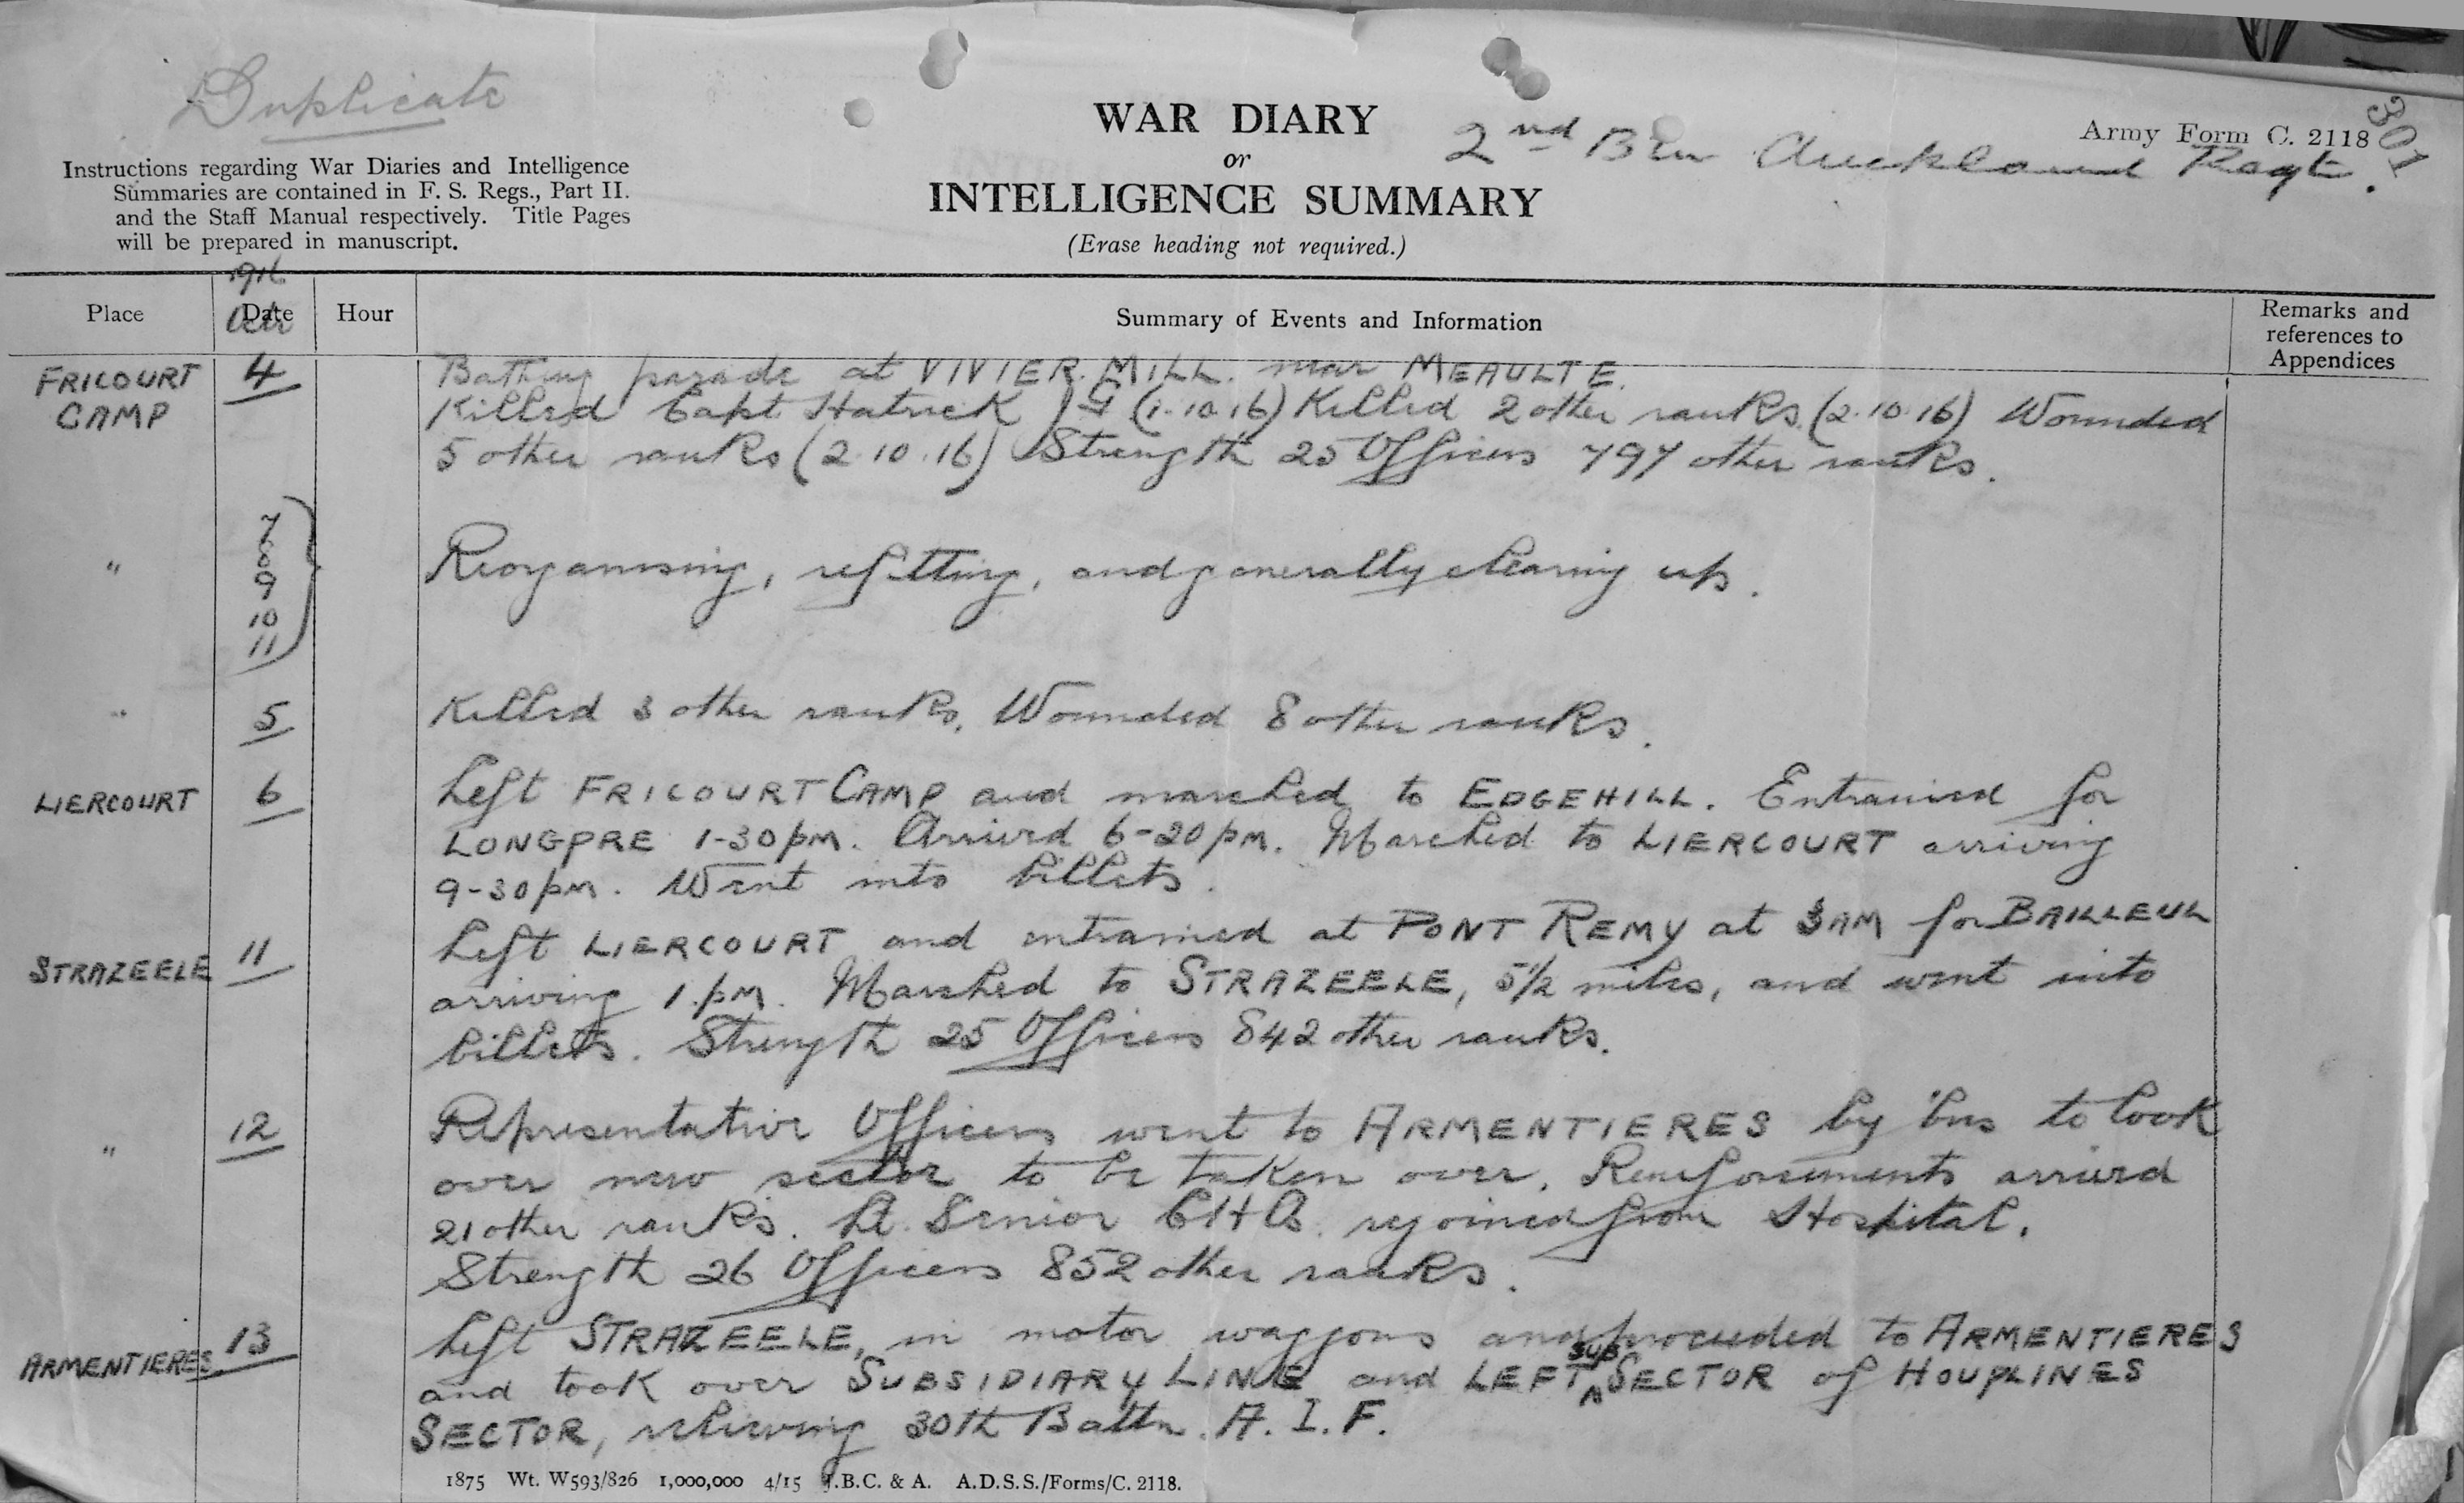 Duplicate
WAR DIARY
or
INTELLIGENCE SUMMARY
(Erase heading not required.)
2nd Bn Auckland Regt.
Army Form C. 2118
301
Instructions regarding War Diaries and Intelligence
Summaries are contained in F. S. Regs., Part II.
and the Staff Manual respectively. Title Pages
will be prepared in manuscript.
1916
Place Date Hour Summary of Events and Information Remarks and references to Appendices
Octr
FRICOURT CAMP 4 Bathing parade at VIVIER MILL. near MEAULTE.
Killed Capt Hatrick (1.10.16) Killed 2 other ranks. (2.10.16) Wounded
5 other ranks (2.10.16) Strength 25 Officers 797 other ranks.
" 7
8
9 Reorganising, refitting, and generally cleaning up.
10
11
" 5 Killed 3 other ranks. Wounded 8 other ranks.
LIERCOURT 6 Left FRICOURT CAMP and marched to EDGEHILL. Entrained for
LONGPRE 1-30pm. Arrived 6-20pm. Marched to LIERCOURT arriving
9-30pm. Went into billets.
STRAZEELE 11 Left LIERCOURT and entrained at PONT REMY at 3AM for BAILLEUL
arriving 1.pm. Marched to STRAZEELE, 5½ miles, and went into
billets. Strength 25 Officers 842 other ranks.
" 12 Representative Officers went to ARMENTIERES by 'bus to look
over new sector to be taken over. Reinforcements arrived
21 other ranks. Lt. Senior CHA. rejoined from Hospital.
Strength 26 Officers 852 other ranks.
ARMENTIERES 13 Left STRAZEELE, in motor waggons and proceeded to ARMENTIERES
and took over SUBSIDIARY LINE and LEFT SUB SECTOR of HOUPLINES
SECTOR, relieving 30th Battn. A.I.F.
1875 Wt. W593/826 1,000,000 4/15 J.B.C. & A. A.D.S.S./Forms/C. 2118.